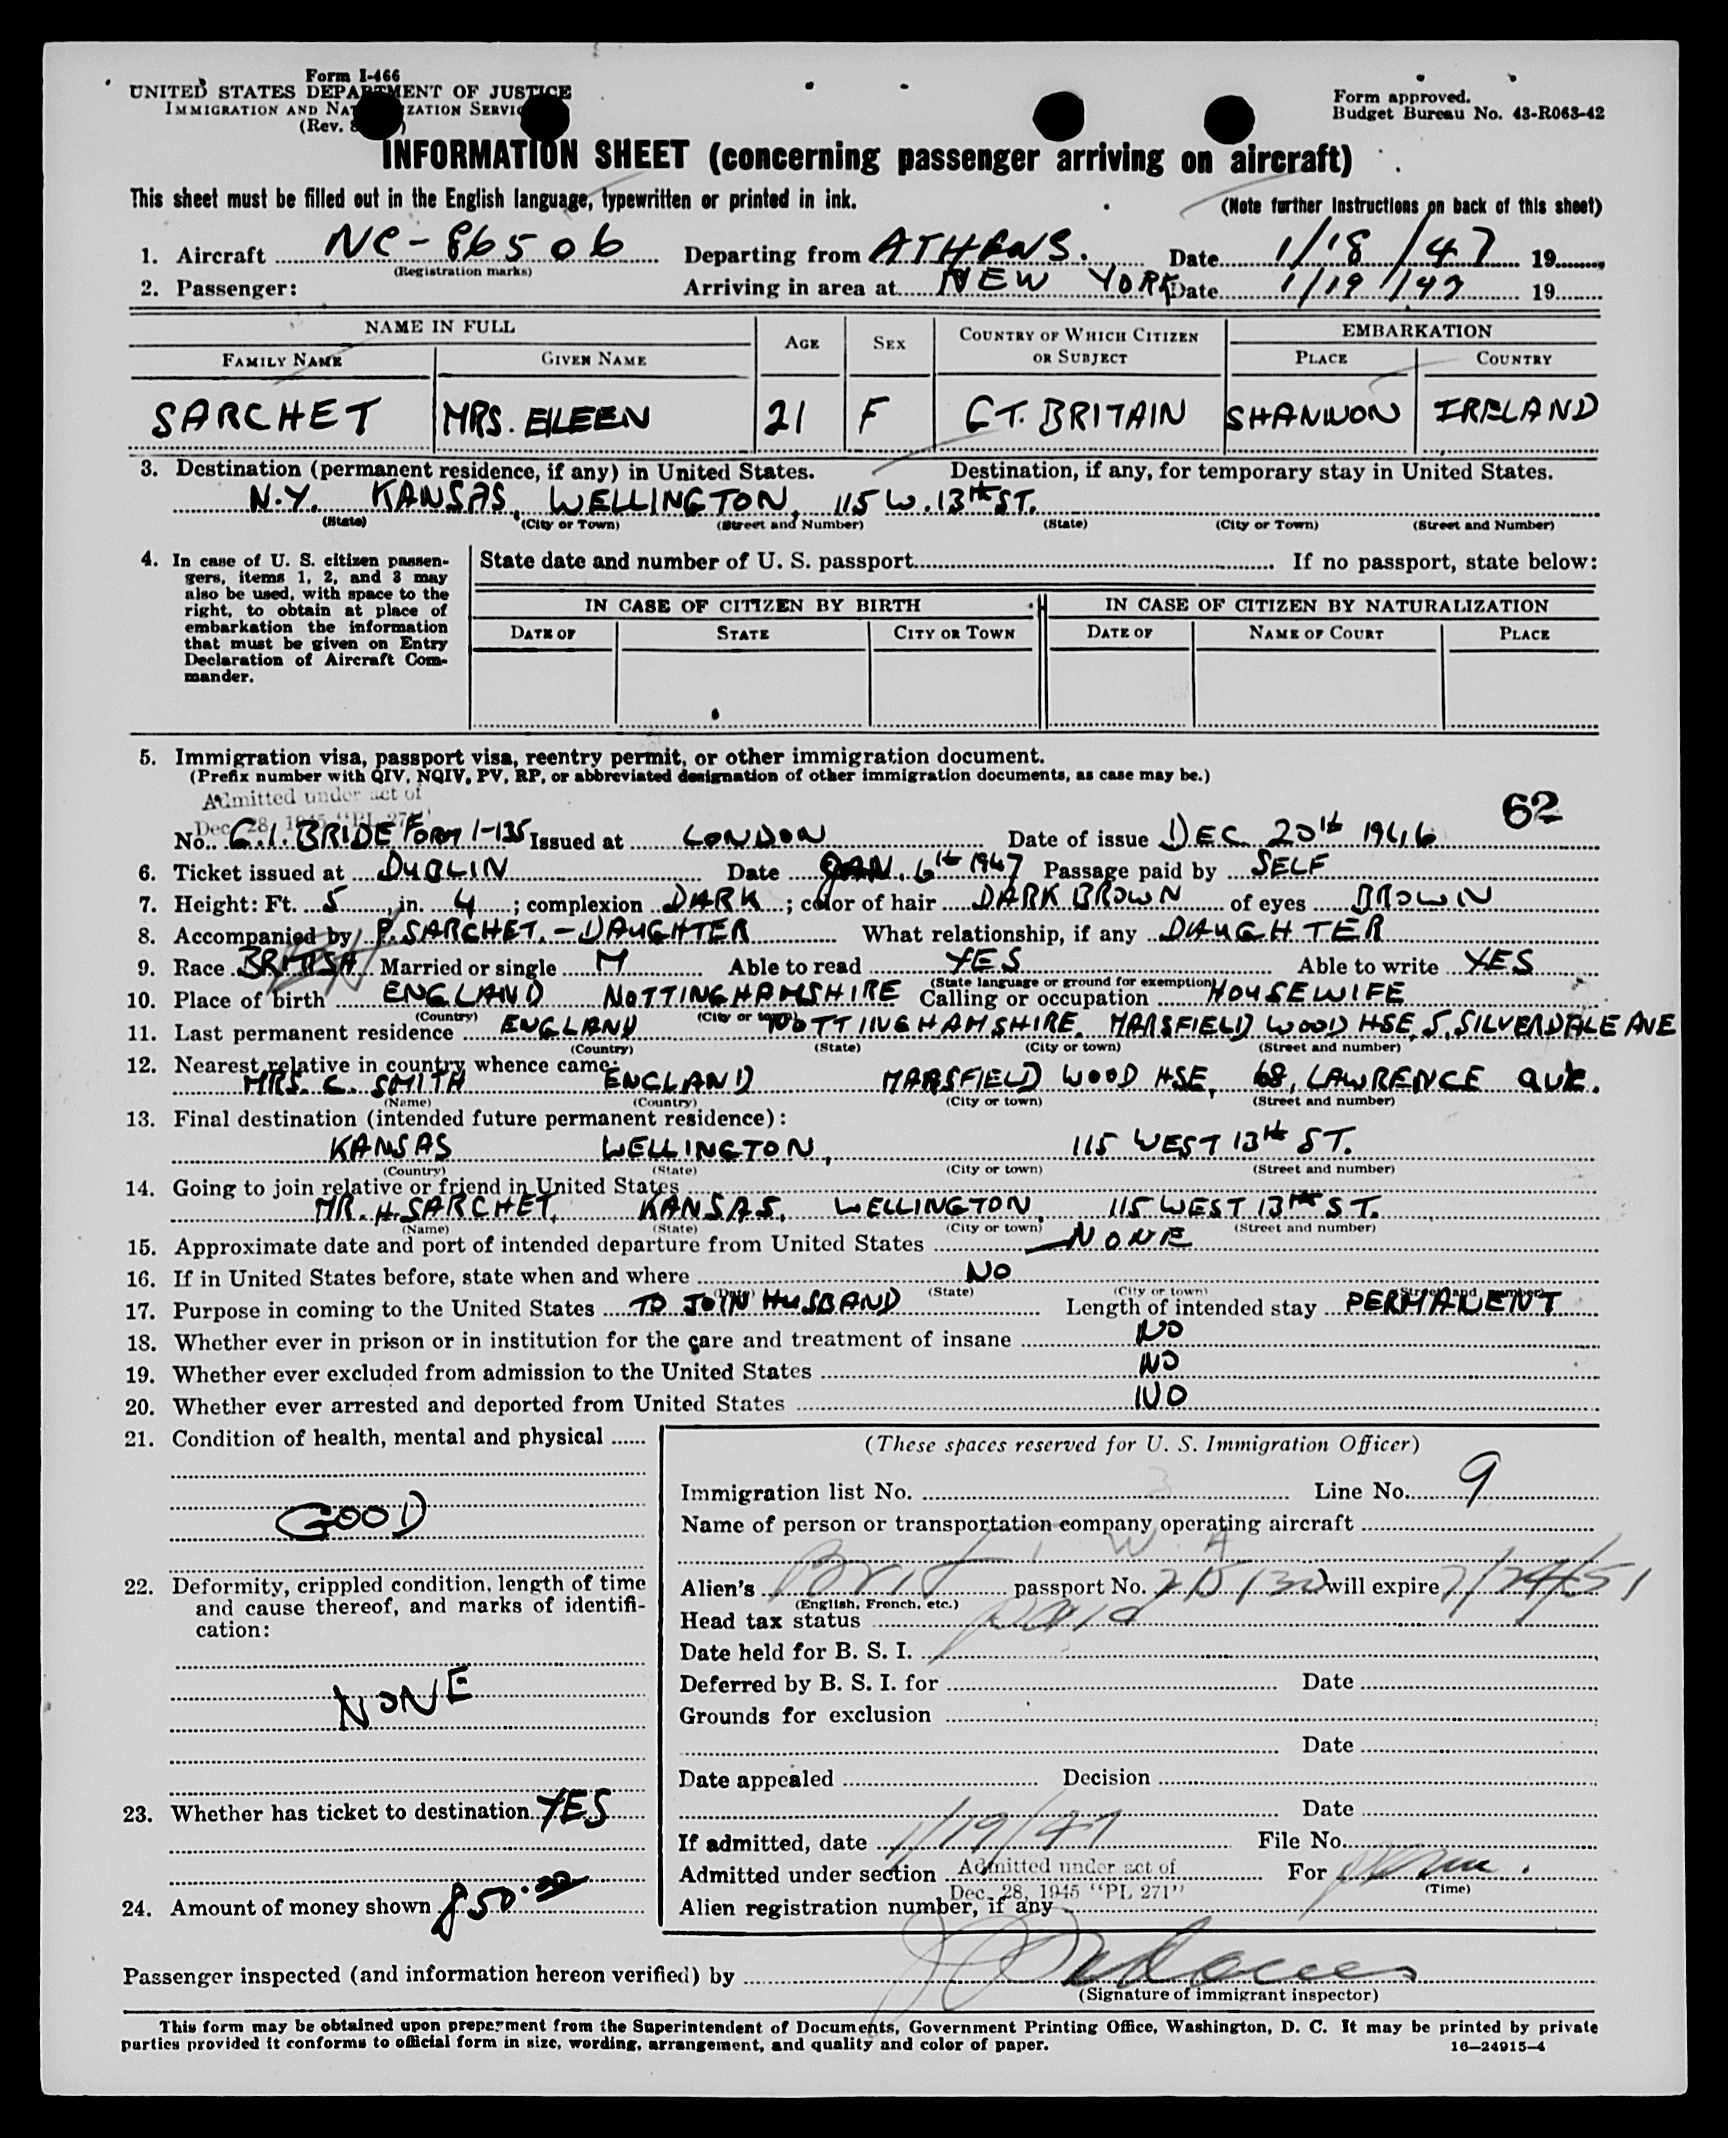 Form I-466
UNITED STATES DEPARTMENT OF JUSTICE
IMMIGRATION AND NATURALIZATION SERVICE
(Rev. )
Form approved.
Budget Bureau No. 43-R063-42
INFORMATION SHEET (concerning passenger arriving on aircraft)
This sheet must be filled out in the English language, typewritten or printed in ink. (Note further instructions on back of this sheet)
1. Aircraft NC-86506 Departing from ATHENS. Date 1/18/47 19
(Registration marks)
2. Passenger: Arriving in area at NEW YORK Date 1/19/47 19
NAME IN FULL AGE SEX COUNTRY OF WHICH CITIZEN OR SUBJECT EMBARKATION
FAMILY NAME GIVEN NAME PLACE COUNTRY
SARCHET MRS. EILEEN 21 F GT. BRITAIN SHANNON IRELAND
3. Destination (permanent residence, if any) in United States. Destination, if any, for temporary stay in United States.
N.Y. KANSAS, WELLINGTON, 115 W. 13th ST.
(State) (City or Town) (Street and Number) (State) (City or Town) (Street and Number)
4. In case of U. S. citizen passengers, items 1, 2, and 3 may also be used, with space to the right, to obtain at place of embarkation the information that must be given on Entry Declaration of Aircraft Commander.
State date and number of U. S. passport If no passport, state below:
IN CASE OF CITIZEN BY BIRTH IN CASE OF CITIZEN BY NATURALIZATION
DATE OF STATE CITY OR TOWN DATE OF NAME OF COURT PLACE
5. Immigration visa, passport visa, reentry permit, or other immigration document.
(Prefix number with QIV, NQIV, PV, RP, or abbreviated designation of other immigration documents, as case may be.)
Admitted under act of
Dec. 28, 1945 "PL 271"
62
No. G.I. BRIDE FORM 1-135 Issued at LONDON Date of issue DEC 20th 1946
6. Ticket issued at DUBLIN Date JAN. 6th 1947 Passage paid by SELF
7. Height: Ft. 5, in. 4; complexion DARK; color of hair DARK BROWN of eyes BROWN
8. Accompanied by P. SARCHET. - DAUGHTER What relationship, if any DAUGHTER
9. Race BRITISH Married or single M Able to read YES Able to write YES
(State language or ground for exemption)
10. Place of birth ENGLAND NOTTINGHAMSHIRE Calling or occupation HOUSEWIFE
(Country) (City or town)
11. Last permanent residence ENGLAND NOTTINGHAMSHIRE, MARSFIELD WOOD HSE, 5, SILVERDALE AVE
(Country) (State) (City or town) (Street and number)
12. Nearest relative in country whence came:
MRS. C. SMITH ENGLAND MARSFIELD WOOD HSE, 68, LAWRENCE AVE.
(Name) (Country) (City or town) (Street and number)
13. Final destination (intended future permanent residence):
KANSAS WELLINGTON, 115 WEST 13th ST.
(Country) (State) (City or town) (Street and number)
14. Going to join relative or friend in United States
MR. H. SARCHET, KANSAS, WELLINGTON, 115 WEST 13th ST.
(Name) (State) (City or town) (Street and number)
15. Approximate date and port of intended departure from United States NONE
16. If in United States before, state when and where NO
(Date) (State) (City or town) (Street and number)
17. Purpose in coming to the United States TO JOIN HUSBAND Length of intended stay PERMANENT
18. Whether ever in prison or in institution for the care and treatment of insane NO
19. Whether ever excluded from admission to the United States NO
20. Whether ever arrested and deported from United States NO
21. Condition of health, mental and physical
GOOD
22. Deformity, crippled condition, length of time and cause thereof, and marks of identification:
NONE
23. Whether has ticket to destination YES
24. Amount of money shown $50.00
(These spaces reserved for U. S. Immigration Officer)
Immigration list No. 3 Line No. 9
Name of person or transportation company operating aircraft
T W A
Alien's Brit passport No. will expire 7/24/51
(English, French, etc.)
Head tax status paid
Date held for B. S. I.
Deferred by B. S. I. for Date
Grounds for exclusion
Date
Date appealed Decision
Date
If admitted, date 1/19/47 File No.
Admitted under section Admitted under act of For perm.
Dec. 28, 1945 "PL 271" (Time)
Alien registration number, if any
Passenger inspected (and information hereon verified) by
(Signature of immigrant inspector)
This form may be obtained upon prepayment from the Superintendent of Documents, Government Printing Office, Washington, D. C. It may be printed by private
parties provided it conforms to official form in size, wording, arrangement, and quality and color of paper. 16—24915-4